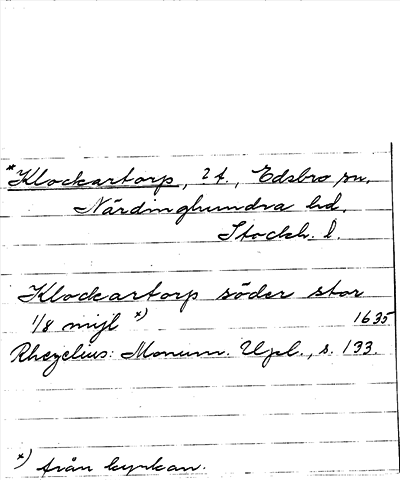 *Klockartorp, 2 t., Edsbro sn,
Närdinghundra hd.
Stockh. l.
Klockartorp söder stor
1/8 mijl *) 1635
Rhezelius: Monum. Upl., s. 133.
*) från kyrkan.